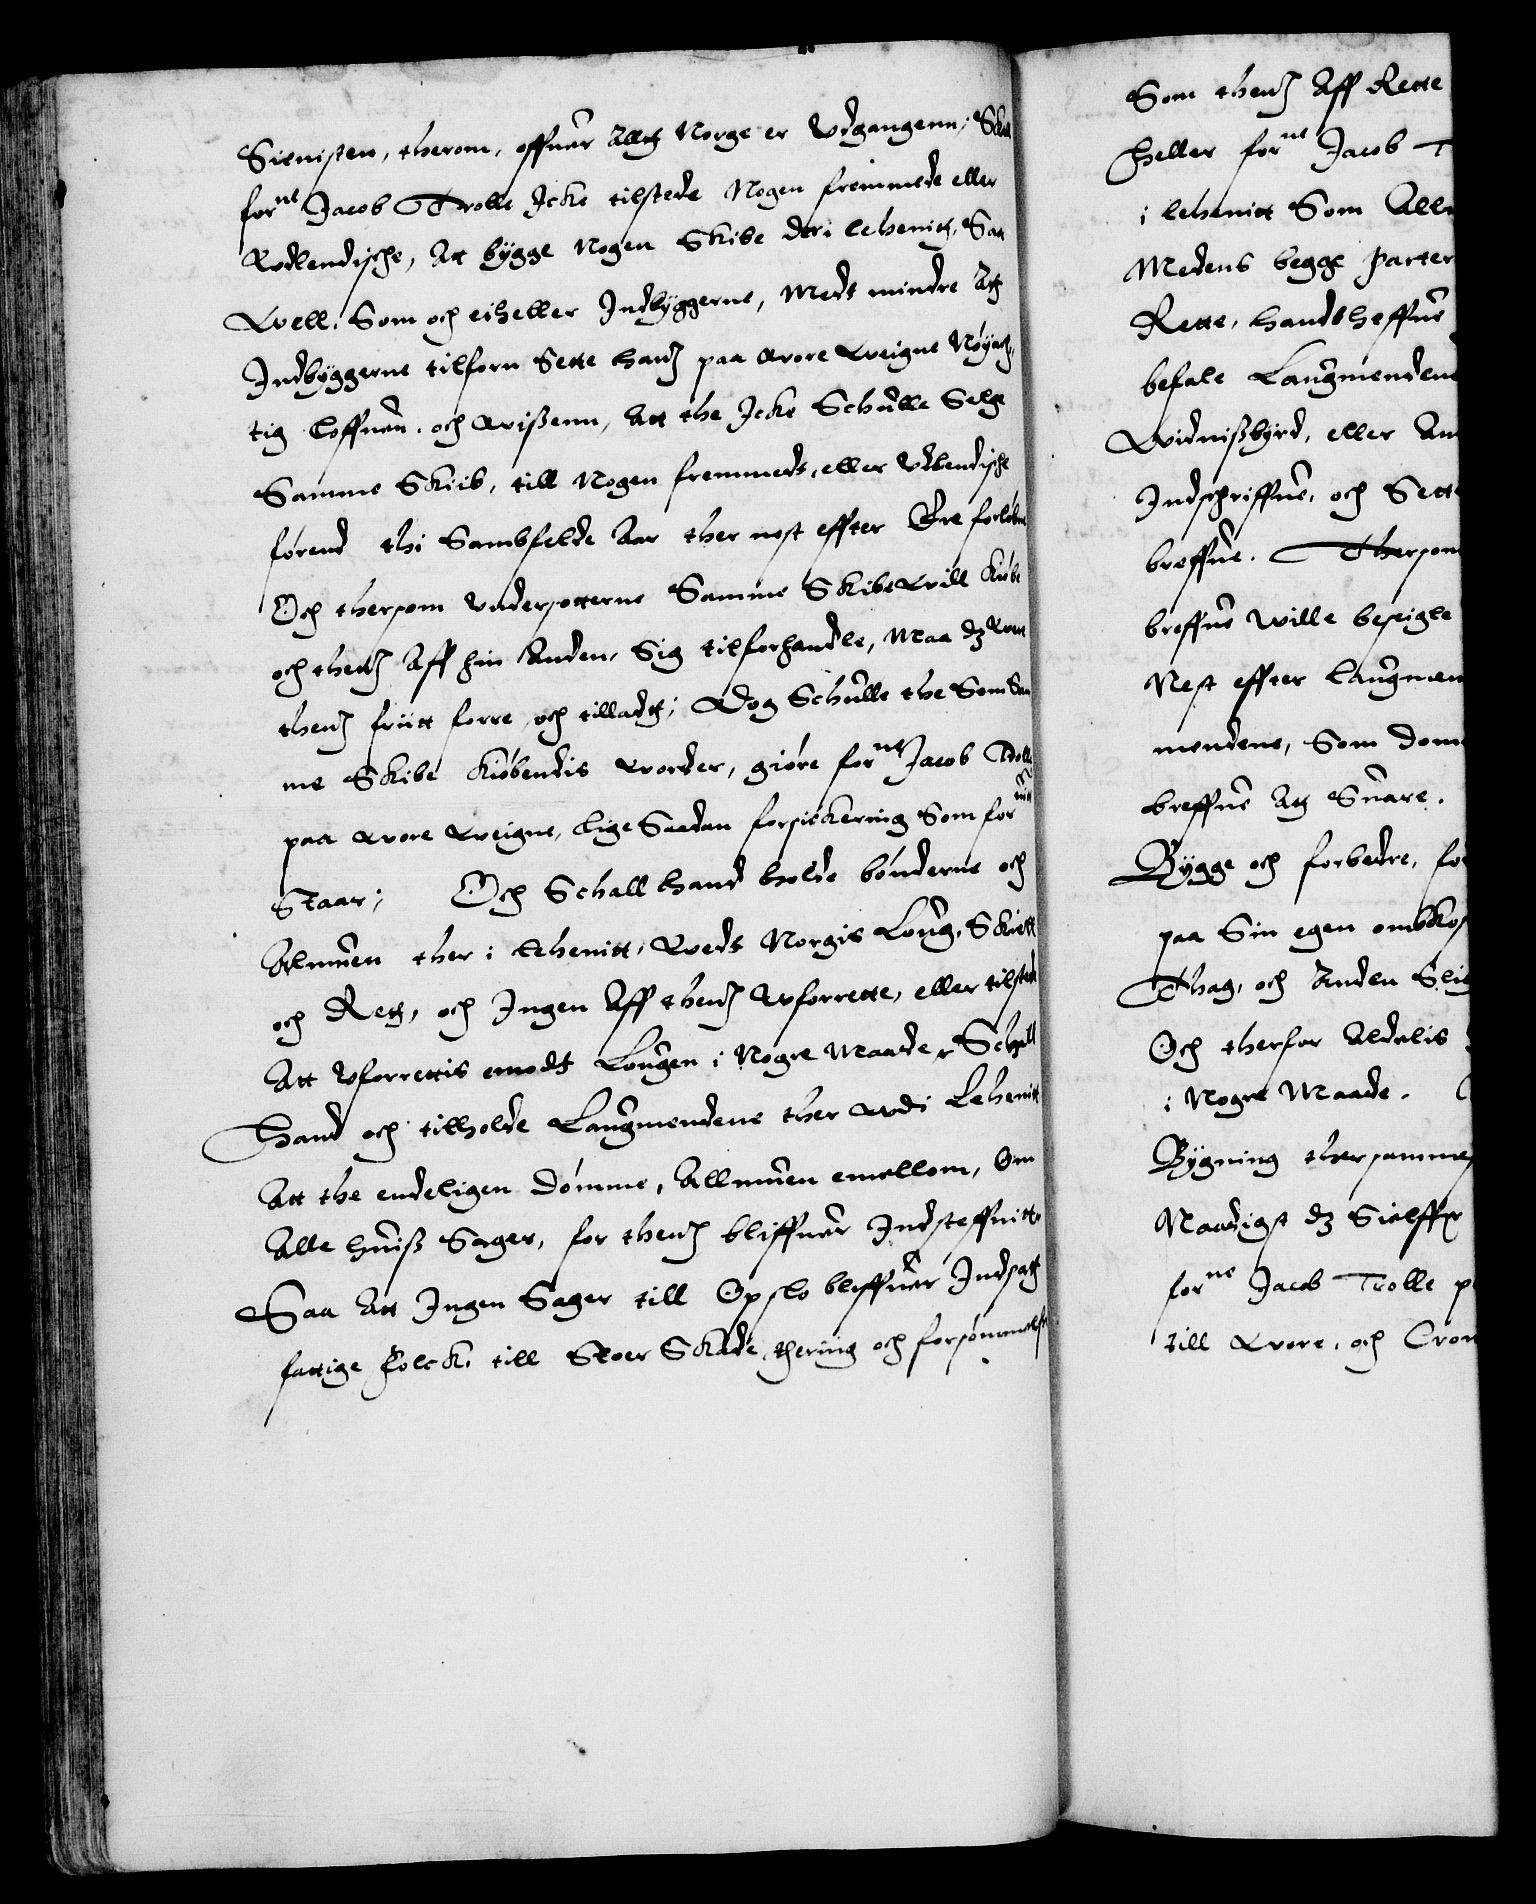 Sienisten, therom, offuer Altt Norge er Vdgangenn, Schall
forne Jacob Trolle Icke tilstede Nogen fremmede eller
Wdlendische, Att bygge Nogen Skibe der i lehenitt, Saa
Well, Som och eiheller Indbyggerne, Medt mindre Att
Indbyggerne tilforn Sette hannom paa Wore Weigne Nøyach,
tig Loffuen. och Wissenn, Att the Icke Schulle Selge
Samme Skiib, till Nogen fremmede, eller Vdlendische
førend thi Sambfelde Aar ther nest effter Ere forløbne
Och thersom Vndersotterne Samme Skibe Will Kiøbe
och thennom Aff hin Anden, Sig tilforhandle, Maa dt Were
thennom friitt forre, och tilladtt; Dog Schulle the Som Sam
me Skibe Kiøbendis Worder, giøre forne Jacob Trolle
paa Wore Weigne, lige Saadan forsickering Som forne
Staar; Och Schall hand holde bønderne och
Almuen ther i Lehenitt, Weds Norgis Loug, Skiell
och Rett, och Ingen Aff thennom Wforrette, eller tilstede
Att Vforrettis emodt Lougen i Nogre Maade, Schall
Hand och tilholde Laugmendene ther Wdi Lehenitt
Att the endeligen Dømme, Allmuen emellom, Om
Alle huiss Sager, for thennom bliffuer Indsteffnitt
Saa Att Ingen Sager till Opslo bliffuer Indsatt
fattige Folck, till Stoer Skade, thering och forsømmelse
Som thennom Aff Rette
Heller forne Jacob T
i lehenitt Som Allm
Medens begge Parter
Rette, handtheffue
befale Laugmendene
Widnissbyrd, eller An
Indschriffue, och Sette
breffue. Thersom
breffue Wille besegle
Nest effter Laugmen
mendene, Som dom
breffue Att Suare.
Bygge och forbedre, for
paa Sin egen ombkost
Thag, och Anden Slig
Och therfor Aldelis
i Nogre Maade.
Bygning thersammes
Naadigst dt Sielffu
forne Jacob Trolle p
till Wore, och Cron